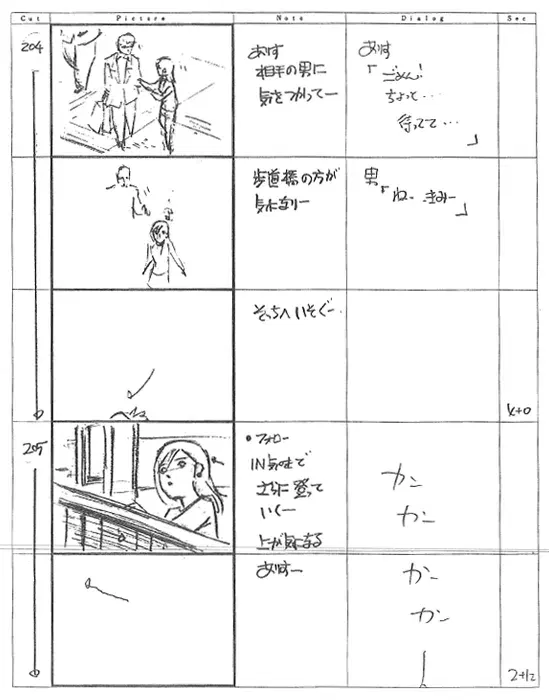 Cut Picture Note Dialog Sec
204
ありす
相手の男に
気をつかってー
ありす
「ごめん!
ちょっと・・・
待ってて・・・
」
歩道橋の方が
気になりー
男
「ね、きみー
」
そっちへいそぐー
4+0
205
・フォロー
IN気味で
登って
いくー
上が気になる
ありすー
カン
カン
カン
カン
2+12